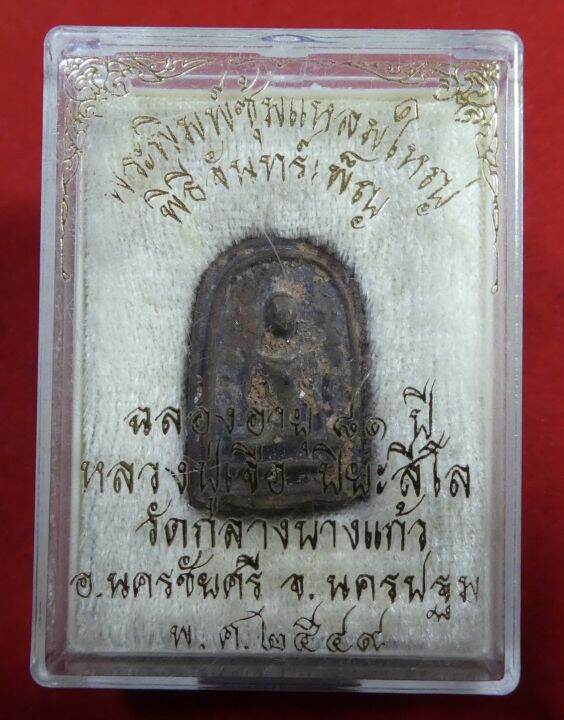 พระพิมพ์ซุ้มแหลมใหญ่
พิธี จันทร์เพ็ญ
ฉลองอายุ ๘๑ ปี
หลวงปู่เจือ ปิยะสีโล
วัดกลางบางแก้ว
อ.นครชัยศรี จ.นครปฐม
พ.ศ.๒๕๔๙